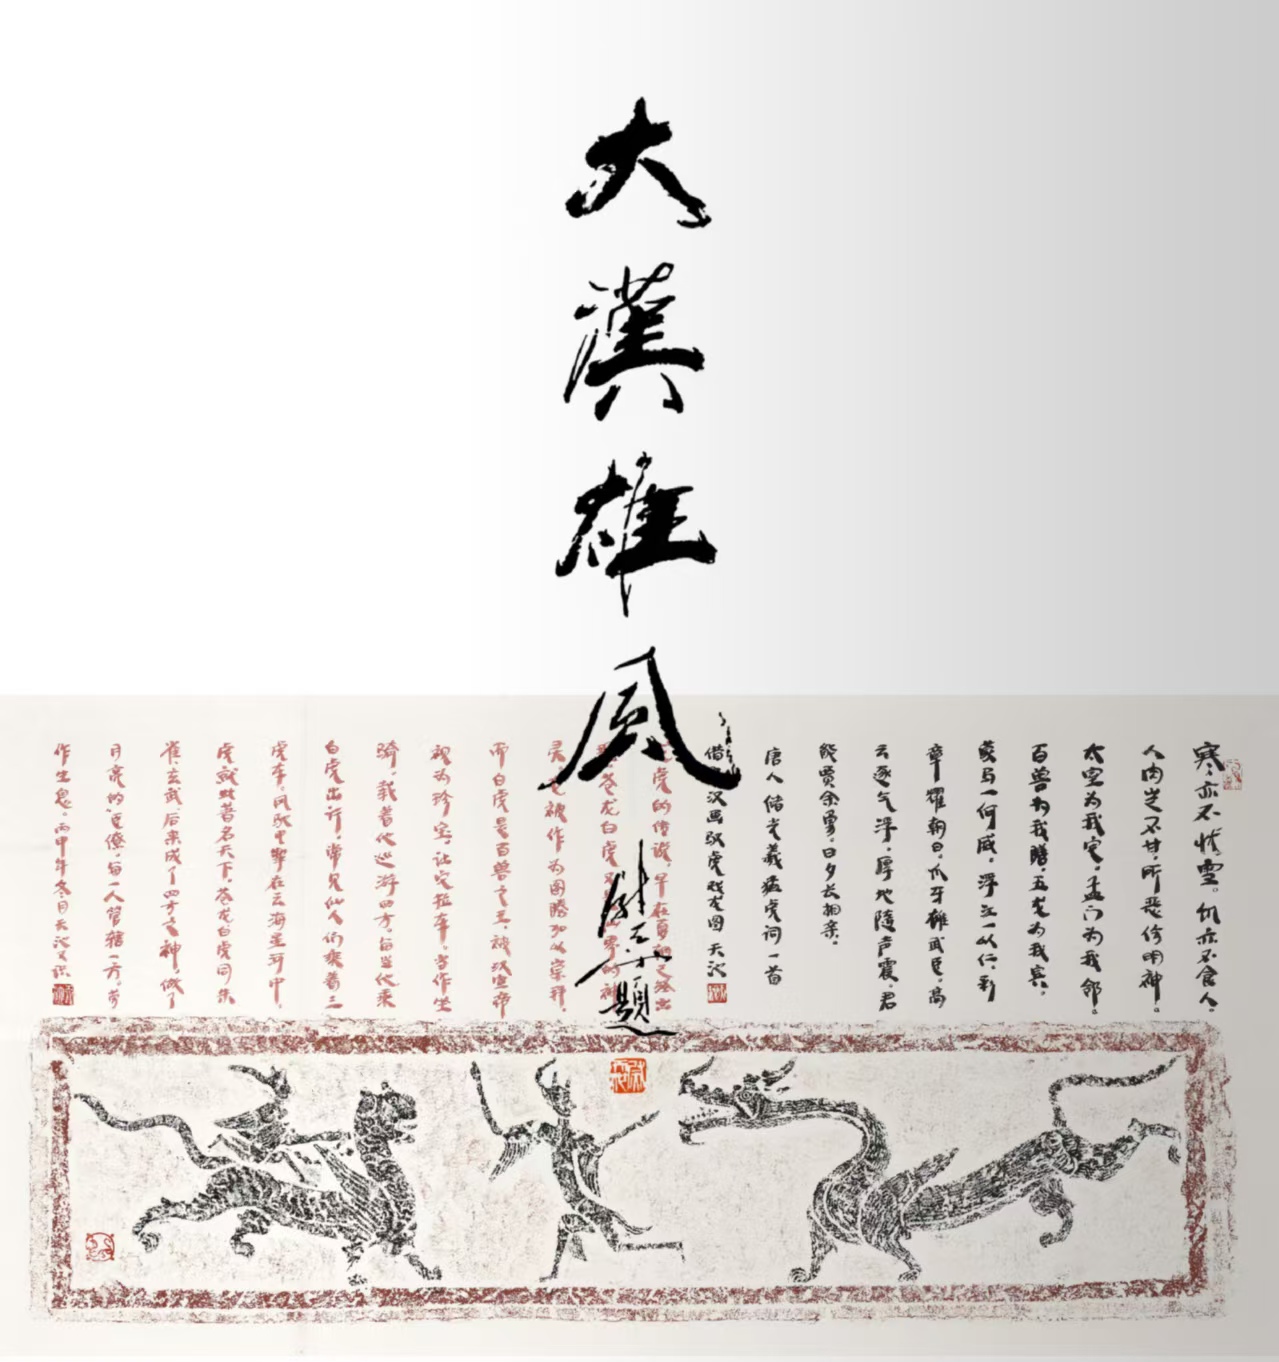 大漢雄風
尉天池題
寒亦不忧雪。饥亦不食人。
人肉岂不甘,所恶伤明神。
太室为我宅,孟门为我邻。
百兽为我膳,五龙为我宾。
蒙马一何威,浮江一以仁。彩
章耀朝日,爪牙雄武臣。高
云逐气浮,厚地随声震。君
能贾余勇,日夕长相亲。
唐人储光羲猛虎词一首
借汉画驭虎戏龙图 天池
虎的传说,早在夏
苍龙白虎又的神
灵。也被作为图腾加以崇拜。
而白虎是百兽之王,被汉宣帝
视为珍宝,让它拉车。当作坐
骑,载着他巡游四方,每当他乘
白虎出行,常见仙人们乘着三
虎车,风驰电掣在云海星河中。
虎就此著名天下。苍龙白虎同朱
雀玄武后来成了四方之神,做了
月亮的臣僚,每一人管辖一方,劳
作生息。丙申年冬月天池又识